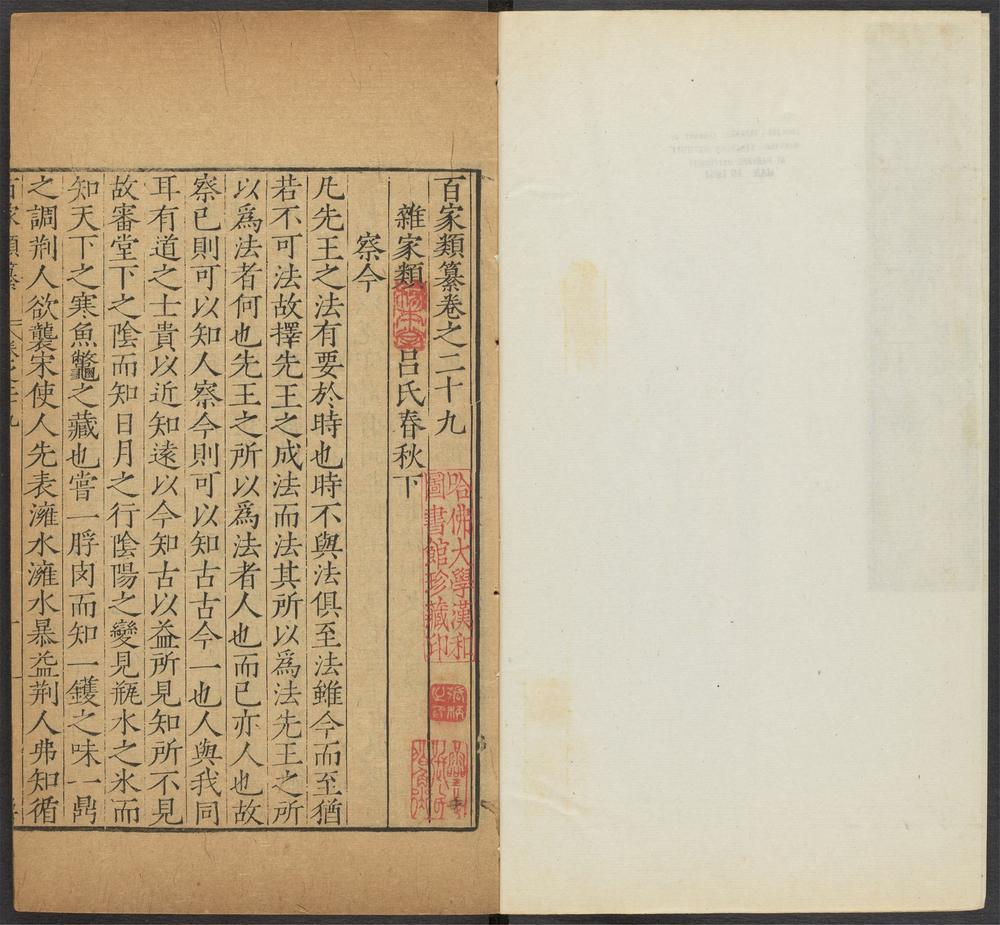 百家類纂卷之二十九
雜家類 呂氏春秋下
察今
凡先王之法有要於時也時不與法俱至法雖今而至猶
若不可法故擇先王之成法而法其所以爲法先王之所
以爲法者何也先王之所以爲法者人也而已亦人也故
察已則可以知人察今則可以知古古今一也人與我同
耳有道之士貴以近知遠以今知古以益所見知所不見
故審堂下之陰而知日月之行陰陽之變見瓶水之氷而
知天下之寒魚鼈之藏也嘗一脬肉而知一鑊之味一鼎
之調荆人欲襲宋使人先表澭水澭水暴益荆人弗知循
百家類纂
哈佛大學漢和
圖書館珍藏印